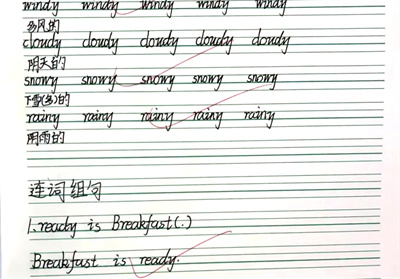 windy windy windy windy windy
多风的
cloudy cloudy cloudy cloudy cloudy
阴天的
snowy snowy snowy snowy snowy
下雪(多)的
rainy rainy rainy rainy rainy
阴雨的
连词组句
1. ready is Breakfast(.)
Breakfast is ready.